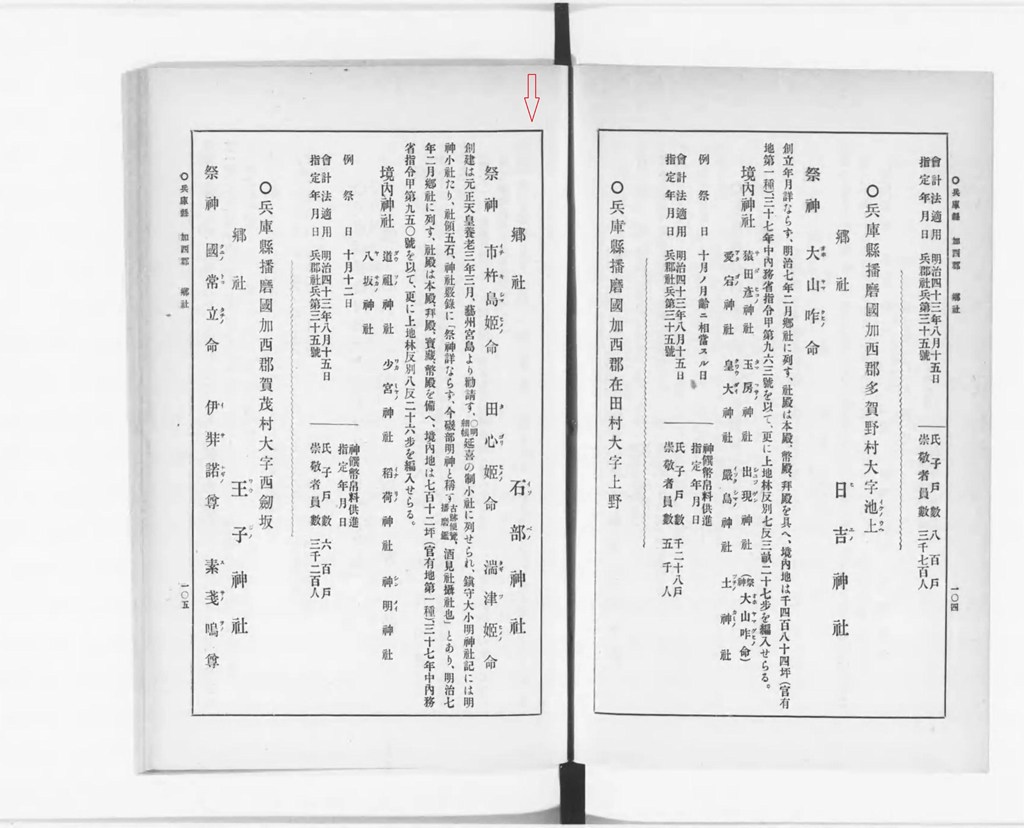 ○兵庫縣 加西郡 郷社
一〇四
會計法適用 明治四十三年八月十五日
指定年月日 兵郡社兵第三十五號
氏子戸數 八百戸
崇敬者員數 三千七百人
○兵庫縣播磨國加西郡多賀野村大字池上
郷社 日吉神社
祭神 大山咋命
創立年月詳ならず、明治七年二月郷社に列す、社殿は本殿、幣殿、拜殿を具へ、境内地は千四百八十四坪(官有
地第一種)、三十七年中内務省指令甲第九六三號を以て、更に上地林反別七反三畝二十七步を編入せらる。
境内神社 猿田彦神社 玉房神社 出現神社(祭神大山咋命)
愛宕神社 皇大神社 嚴島神社 土神社
例祭日 十月ノ月齡ニ相當スル日
神饌幣帛料供進指定年月日
會計法適用 明治四十三年八月十五日
指定年月日 兵郡社兵第三十五號
氏子戸數 千二十八戸
崇敬者員數 五千人
○兵庫縣播磨國加西郡在田村大字上野
郷社 石部神社
祭神 市杵島姬命 田心姬命 湍津姬命
創建は元正天皇養老三年三月、藝州宮島より勸請す、延喜の制小社に列せられ、鎭守大小明神社記には明
神小社たり、社領五石、神社覈錄に「祭神詳ならず、今礒部明神と稱す、酒見社攝社也」とあり、明治七
年二月郷社に列す、社殿は本殿拜殿、寶藏、幣殿を備へ、境内地は七百十二坪(官有地第一種)、三十七年中内務
省指令甲第九五〇號を以て、更に上地林反別八反二十六步を編入せらる。
境内神社 道祖神社 少宮神社 稻荷神社 神明神社
八坂神社
例祭日 十月十二日
神饌幣帛料供進指定年月日
會計法適用 明治四十三年八月十五日
指定年月日 兵郡社兵第三十五號
氏子戸數 六百戸
崇敬者員數 三千二百人
○兵庫縣播磨國加西郡賀茂村大字西劒坂
郷社 王子神社
祭神 國常立命 伊弉諾尊 素戔嗚尊
○兵庫縣 加西郡 郷社
一〇五